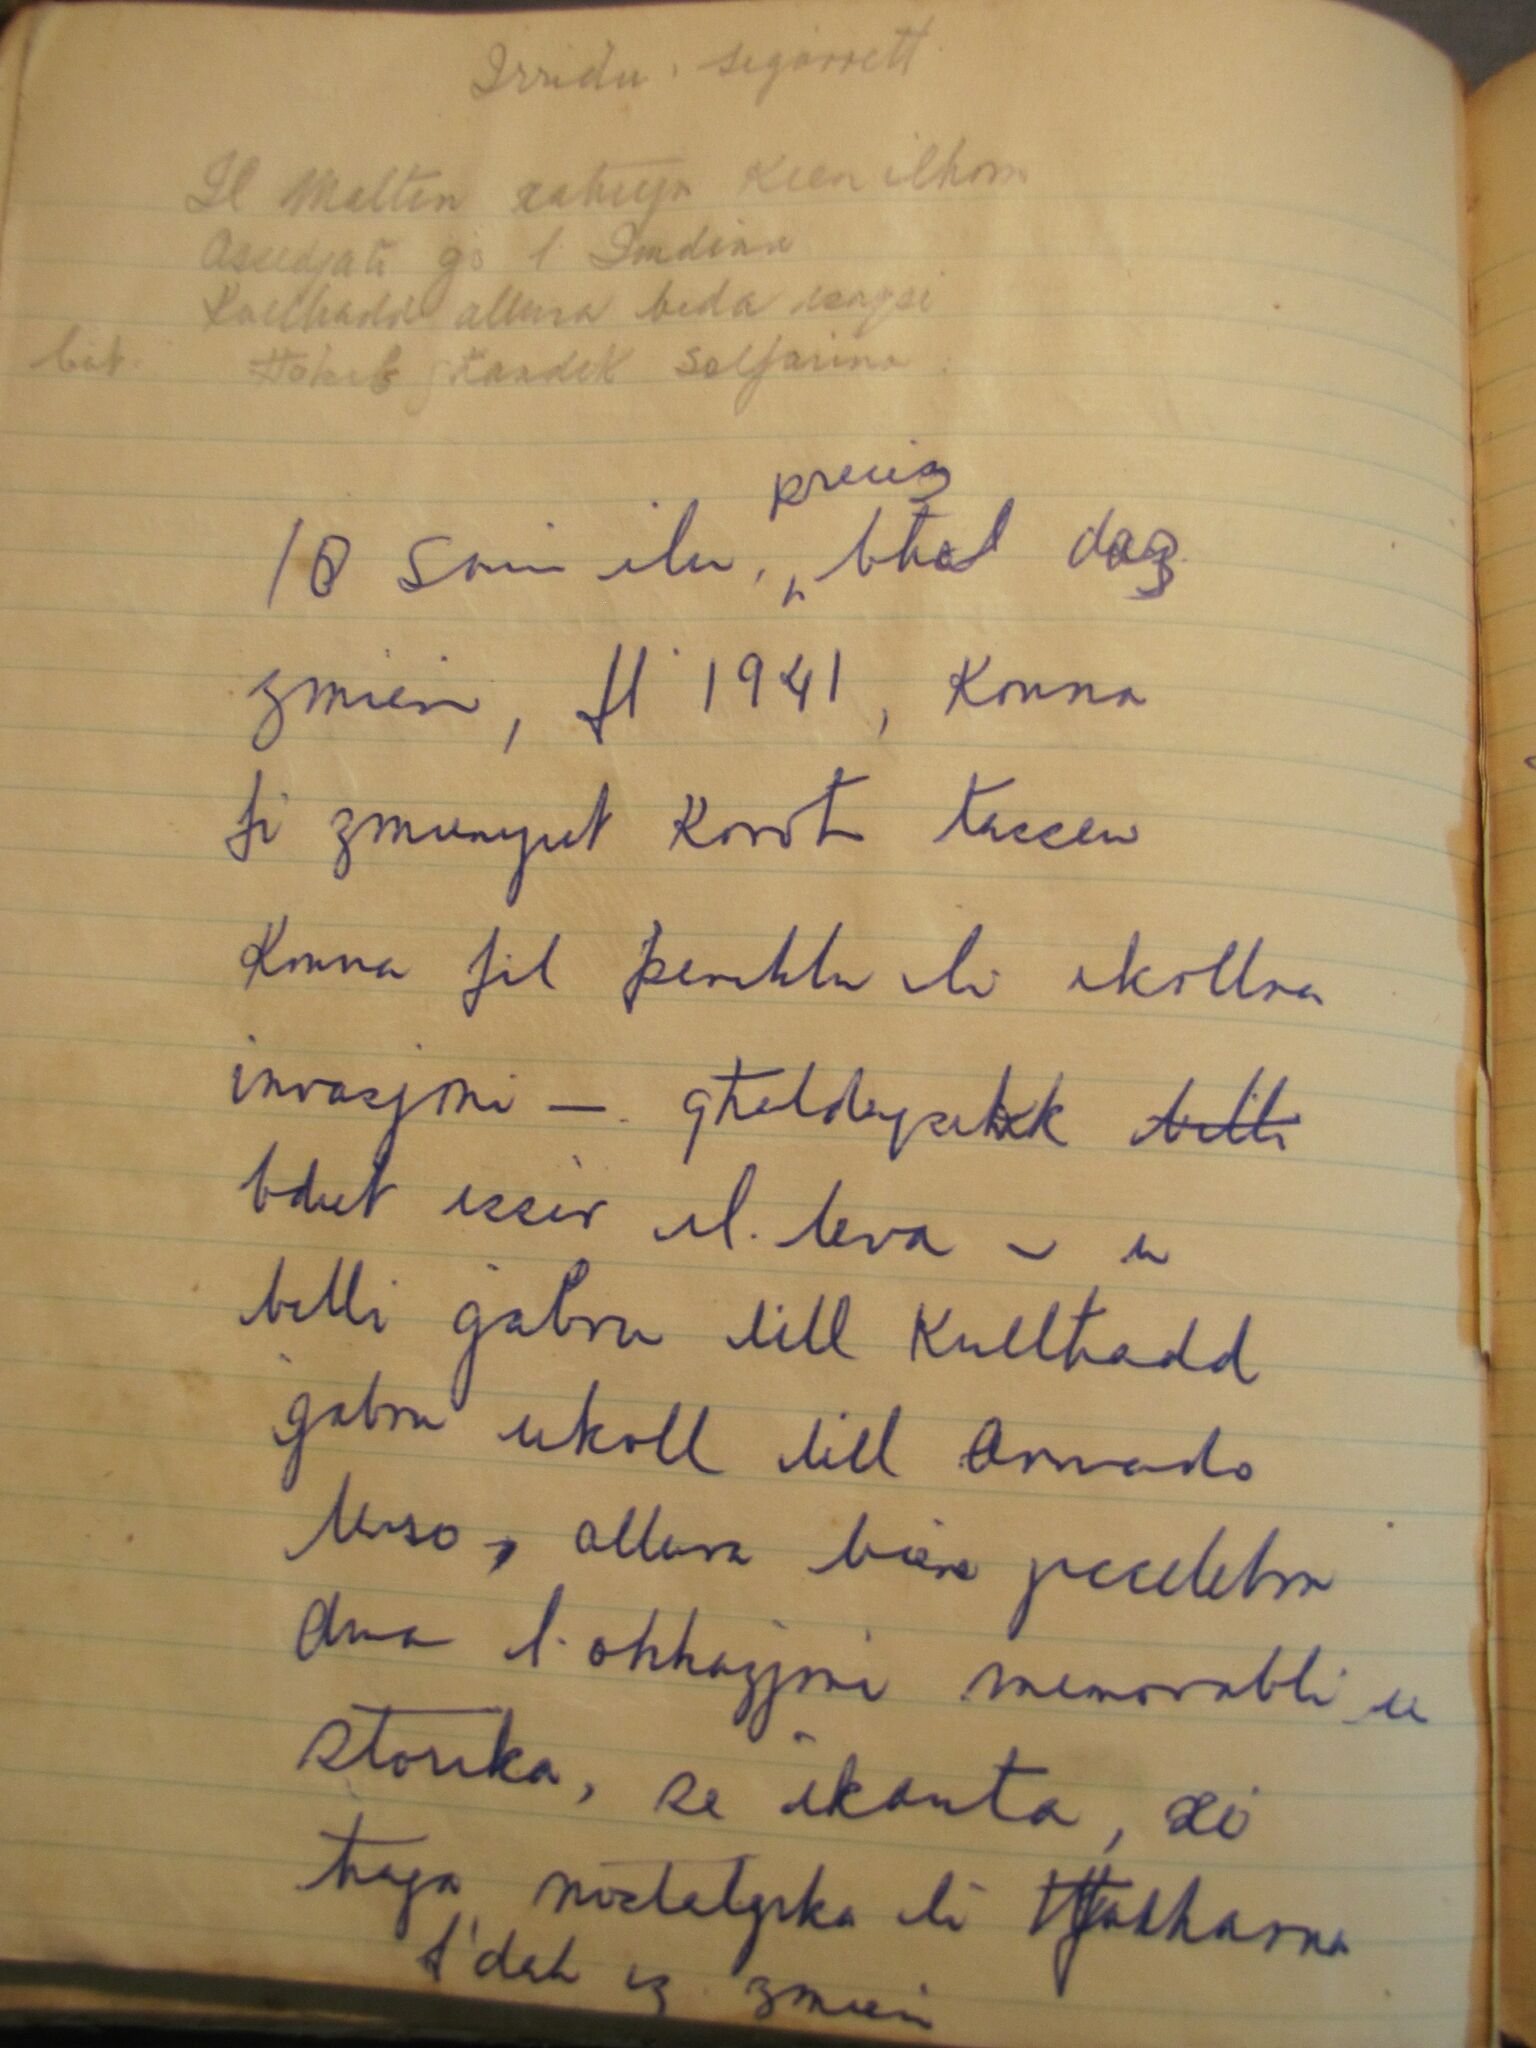 Irridu segarrett
Il Maltin xahieja Kien ilhom
Assedjati ġo l Imdina
Kulħadd allura beda
bot. Selfarina
18 Sniin ilu, preciz bħal daz
zmien, fl 1941, Konna
fi zmenijiet Koroh tassew
Konna fil periklu li ikollna
invasjoni — għaldaqshekk belli
bdiet issir il. leva – u
belli ġabru lill Kullħadd
ġabru ukoll lill Armando
Urso, allura biex jiccelebra
dina l. okkazjoni memorabbli u
storika, se ikanta, xi
ħaġa nostalġika li tfakkarna
f'dak iz zmien